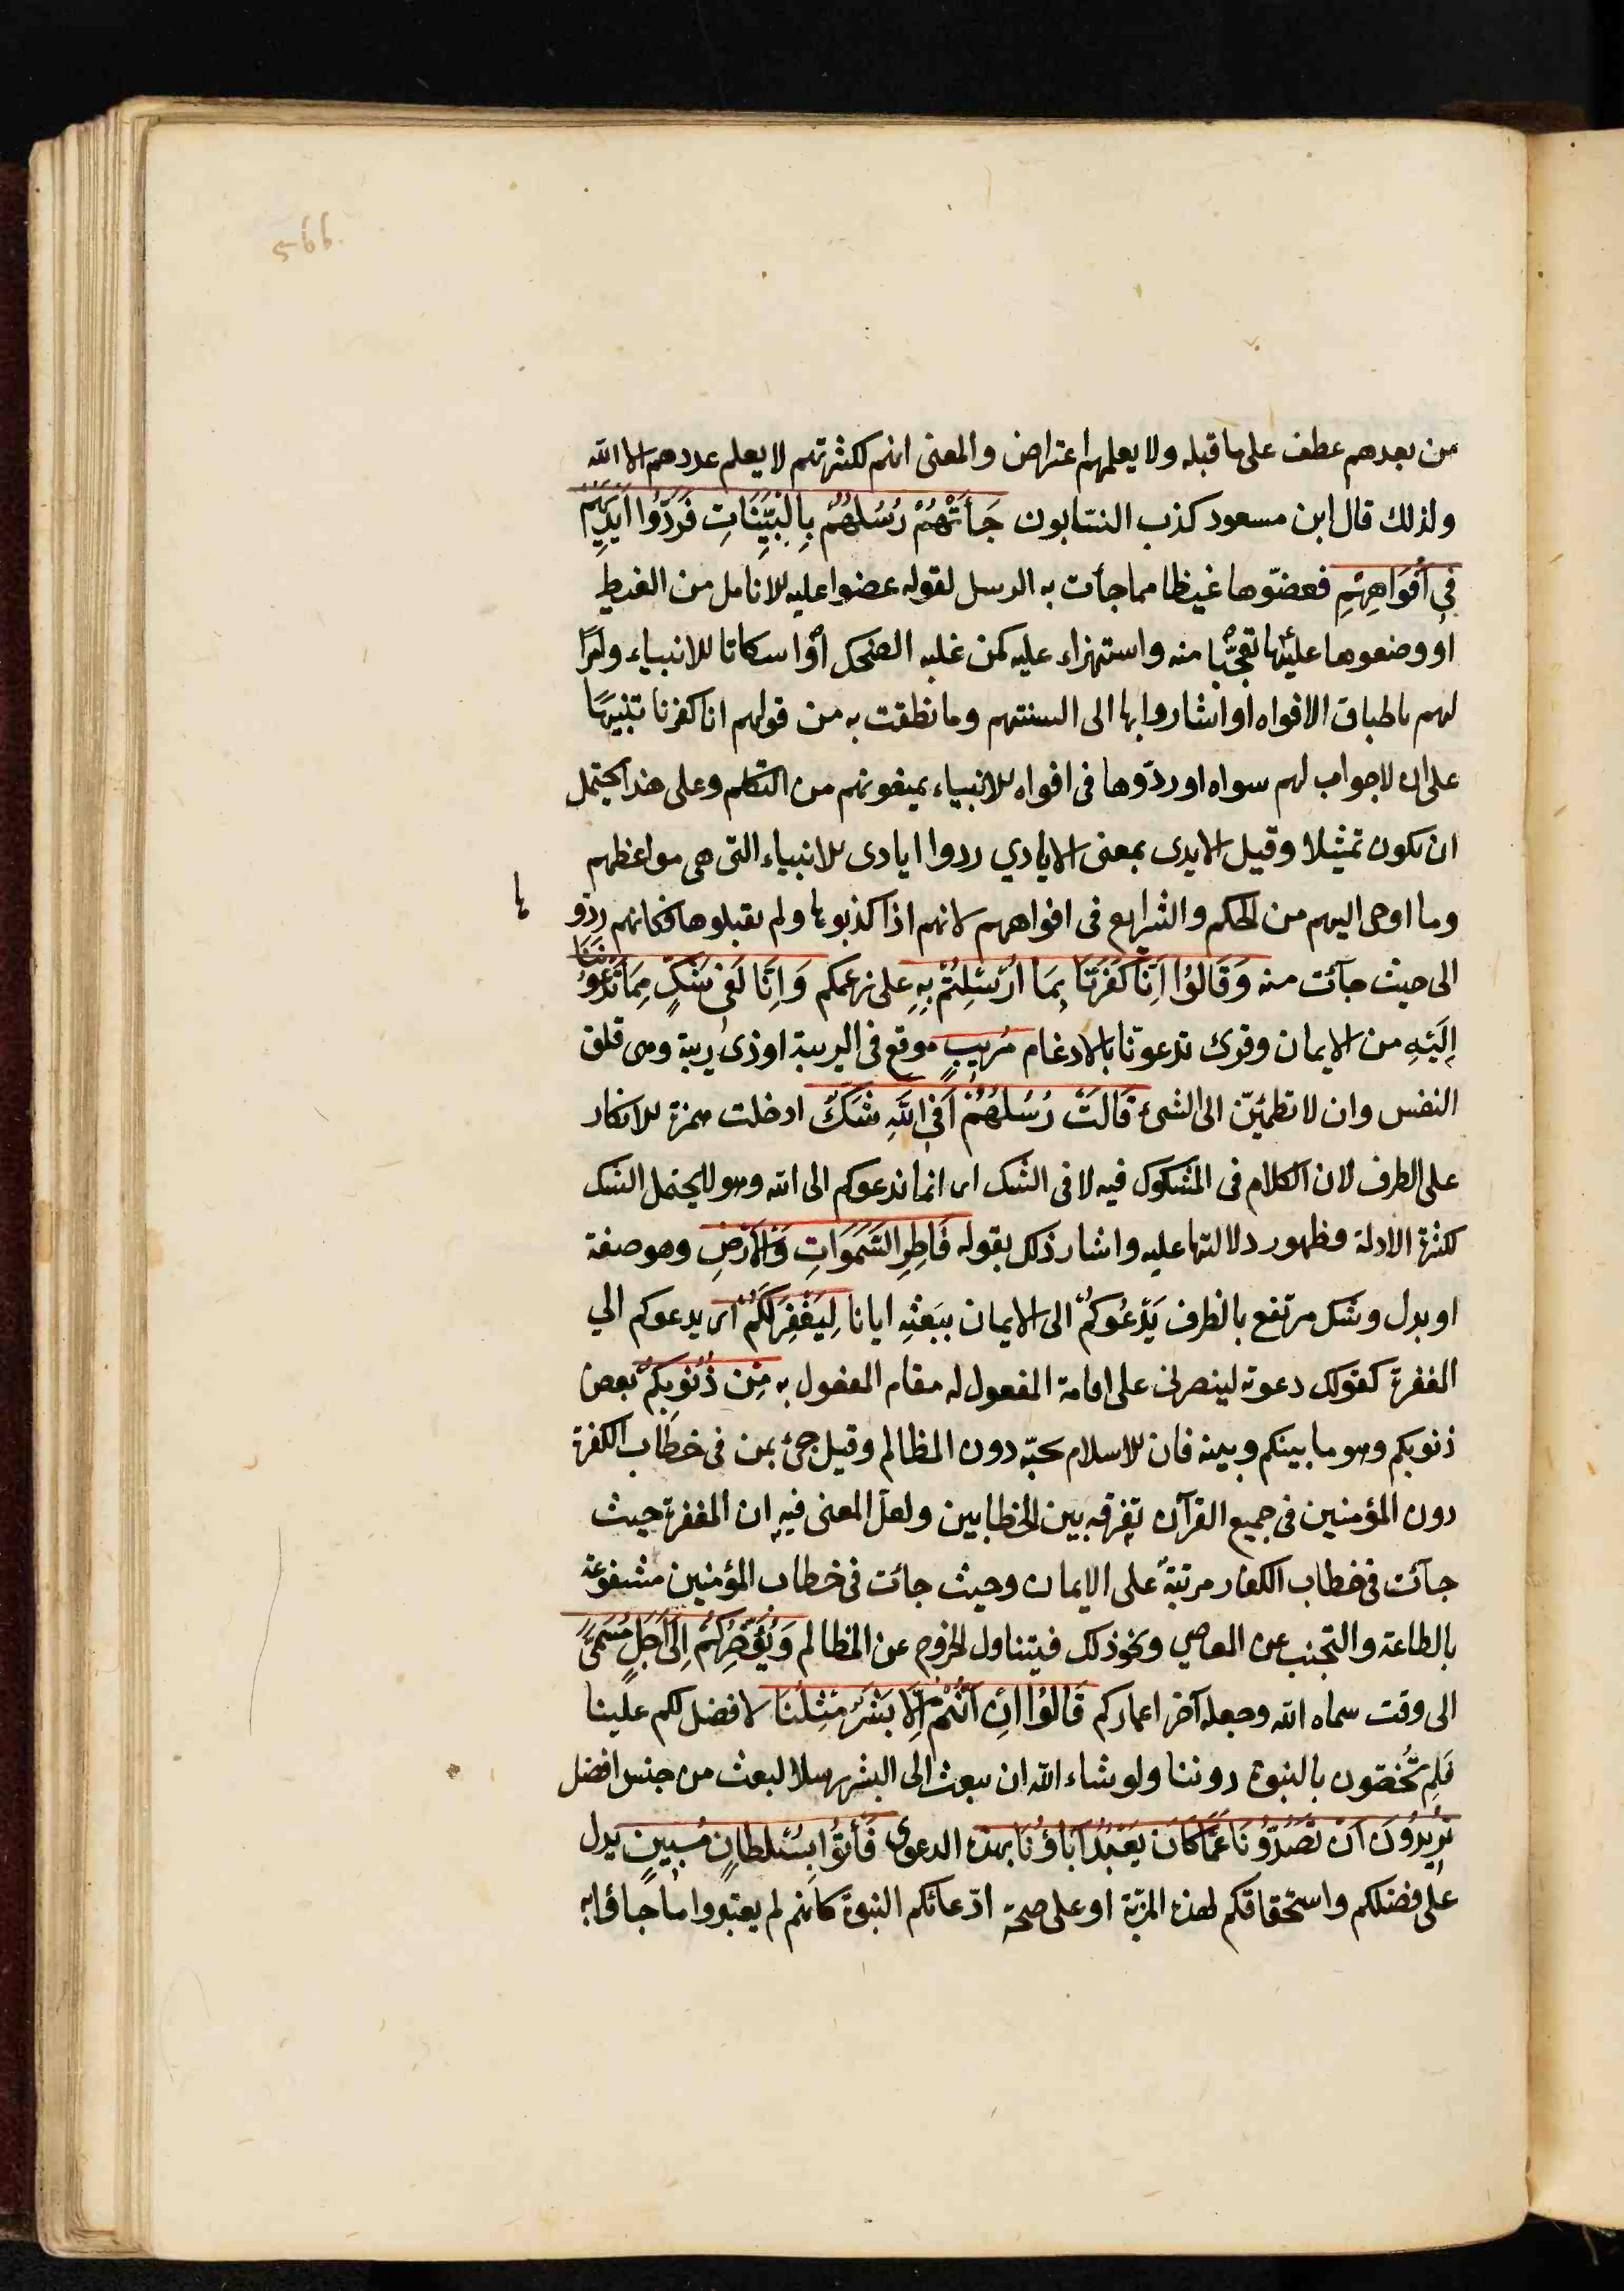 566
من بعدهم عطف على ما قبله ولا يعلمهم اعتراض والمعنى انهم لكثرتهم لا يعلم عددهم الا الله
ولذلك قال ابن مسعود كذب النسابون جَأَتْهُمْ رُسُلُهُمْ بِالْبَيِّنَاتِ فَرَدُّوا اَيْدِيَهُمْ
فِى اَفْوَاهِهِمْ فعضّوها غيظا مما جأت به الرسل لقوله عضوا عليه للانامل من الغيظ
او وضعوها عليها تعجّبا منه واستهزاء عليه كمن غلبه الضحك اوْ اسكاتا للانبياء وامرًا
لهم باطباق الافواه او اشاروا بها الى السنتهم وما نطقت به من قولهم انا كفرنا تنبيهًا
على ان لا جواب لهم سواه او ردّوها فى افواه للانبياء يمنعونهم من التكلم وعلى هذا يحتمل
ان يكون تمثيلا وقيل الايدى بمعنى الايادي ردوا ايادى للانبياء التى هى مواعظهم
وما اوحى اليهم من الحكم والشرايع فى افواههم لانهم اذا كذبوها ولم يقبلوها فكانهم ردّو
ها
الى حيث جآئت منه وَقَالُوا اِنَّا كَفَرْنَا بِمَا اُرْسِلْتُمْ بِهِ على زعمكم وَاِنَّا لَفِى شَكٍّ مِمَّا تَدْعُونَنَا
اِلَيْهِ من الايمان وقرئ تدعونّا بالادغام مُرِيبٍ موقع فى الريبة او ذى ريبة وهى قلق
النفس وان لا تطمئنّ الى الشئ قَالَتْ رُسُلُهُمْ اَفِى اللّٰهِ شَكٌّ ادخلت همزة للانكار
على الظرف لان الكلام فى المشكوك فيه لا فى الشك اى انما ندعوكم الى الله وهو لا يحتمل الشك
لكثرة الادلة وظهور دلالتها عليه واشار ذلك بقوله فَاطِرِ السَّمٰوَاتِ وَالْاَرْضِ وهو صفة
او بدل وشك مرتفع بالظرف يَدْعُوكُمْ الى الايمان ببَعْثِه ايانا لِيَغْفِرَلَكُمْ اى يدعوكم الي
المغفرة كقولك دعوته لينصرنى على اقامة المفعول له مقام المفعول به مِنْ ذُنُوبِكُمْ بعض
ذنوبكم وهو ما بينكم وبينه فان للاسلام يجبّه دون المظالم وقيل جئ بمن فى خطاب الكفرة
دون المؤمنين فى جميع القرآن تفرقه بين الخطابين ولعل المعنى فيه ان المغفرة حيث
جآئت فى خطاب الكفار مرتبة على الايمان وحيث جائت فى خطاب المؤمنين مشفوعة
بالطاعة والتجنب عن المعاصي ونحو ذلك فيتناول الخروج عن المظالم وَيُؤَخِّرَكُمْ اِلَى اَجَلٍ مُسَمًّى
الى وقت سماه الله وجعله آخر اعماركم قَالُوا اِنْ اَنْتُمْ اِلَّا بَشَرٌ مِثْلُنَا لا فضل لكم علينا
فلِم تُخصّون بالنبوة دوننا ولو شاء الله ان يبعث الى البشر رسلا لبعث من جنس افضل
تُرِيدُونَ اَنْ تَصُدُّونَا عَمَّا كَانَ يَعْبُدُ آبَاؤُنَا بهذه الدعوى فَأْتُوا بِسُلْطَانٍ مُبِينٍ يدل
على فضلكم واستحقاقكم لهذه المزيّة او على صحة ادّعائكم النبوة كانهم لم يعتبروا ما جاؤا به